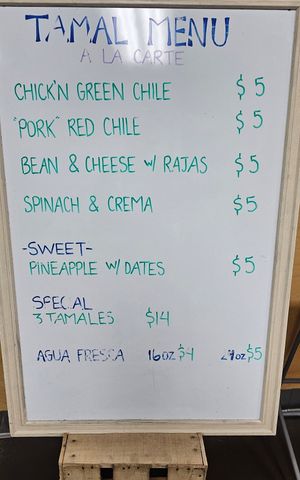 TAMAL MENU
A LA CARTE
CHICK'N GREEN CHILE $5
"PORK" RED CHILE $5
BEAN & CHEESE W/ RAJAS $5
SPINACH & CREMA $5
-SWEET-
PINEAPPLE W/ DATES $5
SPECIAL
3 TAMALES $14
AGUA FRESCA 16oz $4 24oz $5